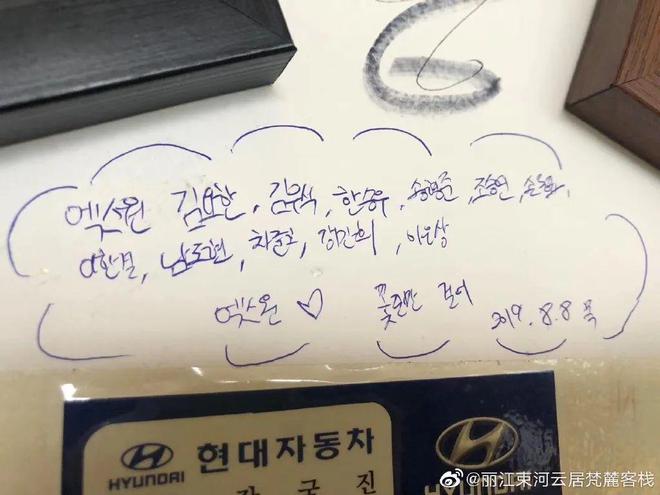 엑스원 김요한, 김우석, 한승우, 송형준, 조승연, 손동표,
이한결, 남도현, 차준호, 강민희, 이은상
엑스원 ♡ 꽃길만 걸어 2019. 8. 8 목
HYUNDAI 현대자동차
HYUNDAI
강국진
@丽江束河云居梵麓客栈